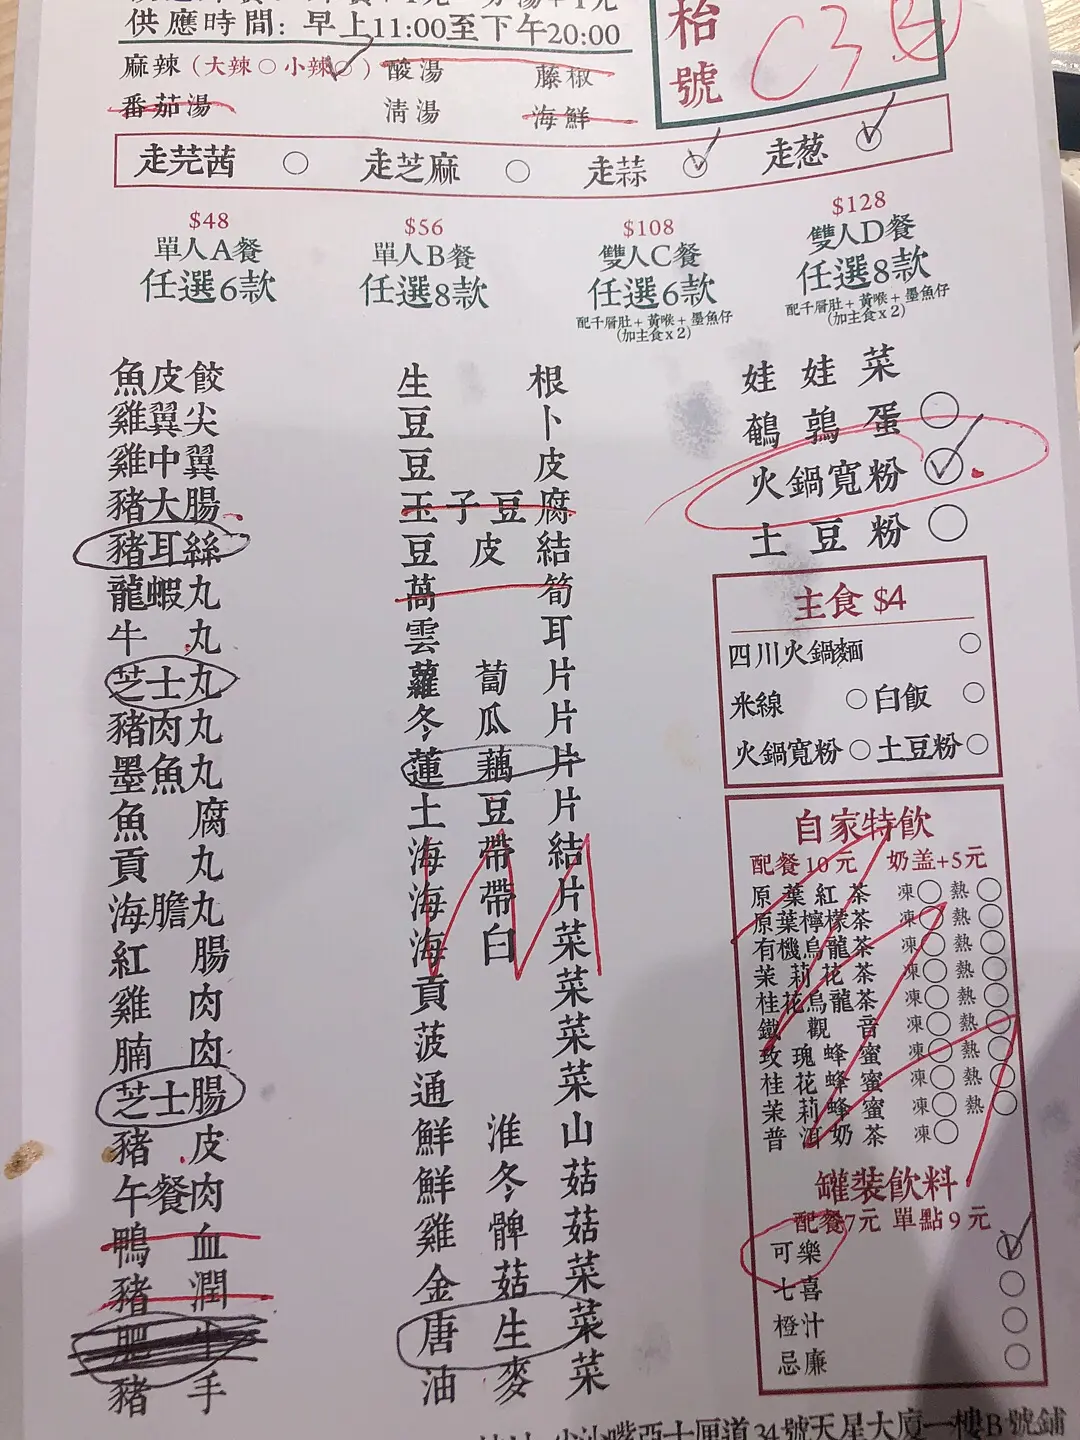 供應時間: 早上11:00至下午20:00
麻辣 (大辣○小辣○) 酸湯 藤椒
番茄湯 清湯 海鮮
枱號
C3
走芫茜 ○ 走芝麻 ○ 走蒜 ○ 走葱
$48
單人A餐
任選6款
$56
單人B餐
任選8款
$108
雙人C餐
任選6款
配千層肚+黃喉+墨魚仔
(加主食x2)
$128
雙人D餐
任選8款
配千層肚+黃喉+墨魚仔
(加主食x2)
魚皮餃
雞翼尖
雞中翼
豬大腸
豬耳絲
龍蝦丸
牛丸
芝士丸
豬肉丸
墨魚丸
魚腐
貢丸
海膽丸
紅腸
雞肉
腩肉
芝士腸
豬皮
午餐肉
鴨血
豬潤
肥牛
豬手
生根
豆卜
豆皮
玉子豆腐
豆皮結
萵筍
雲耳
蘿蔔片
冬瓜片
蓮藕片
土豆片
海帶結
海帶片
海白菜
貢菜
菠菜
通菜
鮮淮山
鮮冬菇
雞髀菇
金菇菜
唐生菜
油麥菜
娃娃菜
鵪鶉蛋 ○
火鍋寬粉 ○
土豆粉 ○
主食 $4
四川火鍋麵 ○
米線 ○ 白飯 ○
火鍋寬粉 ○ 土豆粉 ○
自家特飲
配餐10元 奶盖+5元
原葉紅茶 凍○ 熱○
原葉檸檬茶 凍○ 熱○
有機烏龍茶 凍○ 熱○
茉莉花茶 凍○ 熱○
桂花烏龍茶 凍○ 熱○
鐵觀音 凍○ 熱○
玫瑰蜂蜜 凍○ 熱○
桂花蜂蜜 凍○ 熱○
茉莉蜂蜜 凍○ 熱○
普洱奶茶 凍○
罐裝飲料
配餐7元 單點9元
可樂 ○
七喜 ○
橙汁 ○
忌廉 ○
尖沙嘴亞士厘道34號天星大廈一樓B號鋪